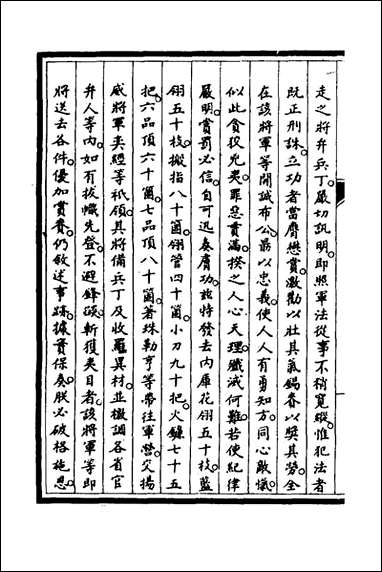 走之將弁兵丁嚴切訊明即照軍法從事不稍寬縱惟犯法者
既正刑誅立功者當膺懋賞激勸以壯其氣錫眷以獎其勞全
在該將軍等開誠布公晶以忠義使人人有勇知方同心敵愾
似此貪狡兇夷罪惡貫滿揆之人心天理殲滅何難若使紀律
嚴明賞罰必信自可迅奏膚功茲特發去內庫花翎五十枝藍
翎五十枝搬指八十箇翎管四十箇小刀九十把火鐮七十五
把六品頂六十箇七品頂八十箇著珠勒亨等帶往軍營交揚
威將軍奕經等祇領其將備兵丁及收羅異材並檄調各省官
弁人等內如有拔幟先登不避鋒礮斬獲夷目者該將軍等即
將送去各件優加賞賚仍敘述事蹟據實保奏朕必破格施恩